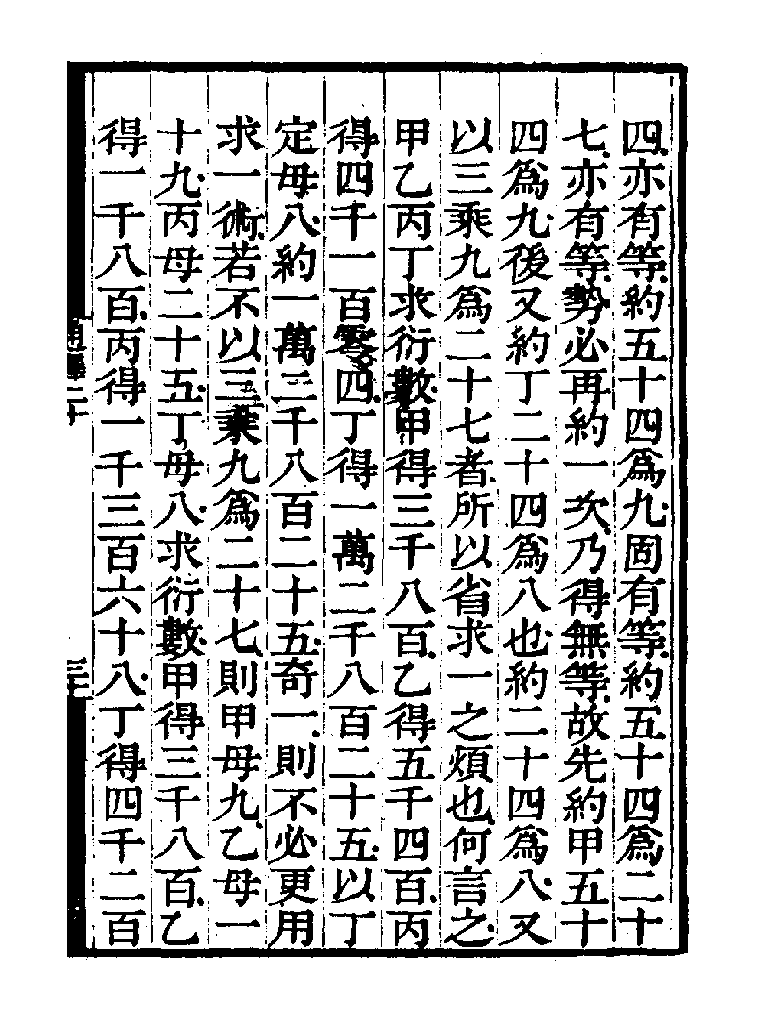 四亦有等約五十四爲九固有等約五十四爲二十
七亦有等勢必再約一次乃得無等故先約甲五十
四爲九後又約丁二十四爲八也約二十四爲八又
以三乘九爲二十七者所以省求一之煩也何言之
甲乙丙丁求衍數甲得三千八百乙得五千四百丙
得四千一百零四丁得一萬二千八百二十五以丁
定母八約一萬二千八百二十五奇一則不必更用
求一術若不以三乘九爲二十七則甲母九乙母一
十九丙母二十五丁母八求衍數甲得三千八百乙
得一千八百丙得一千三百六十八丁得四千二百